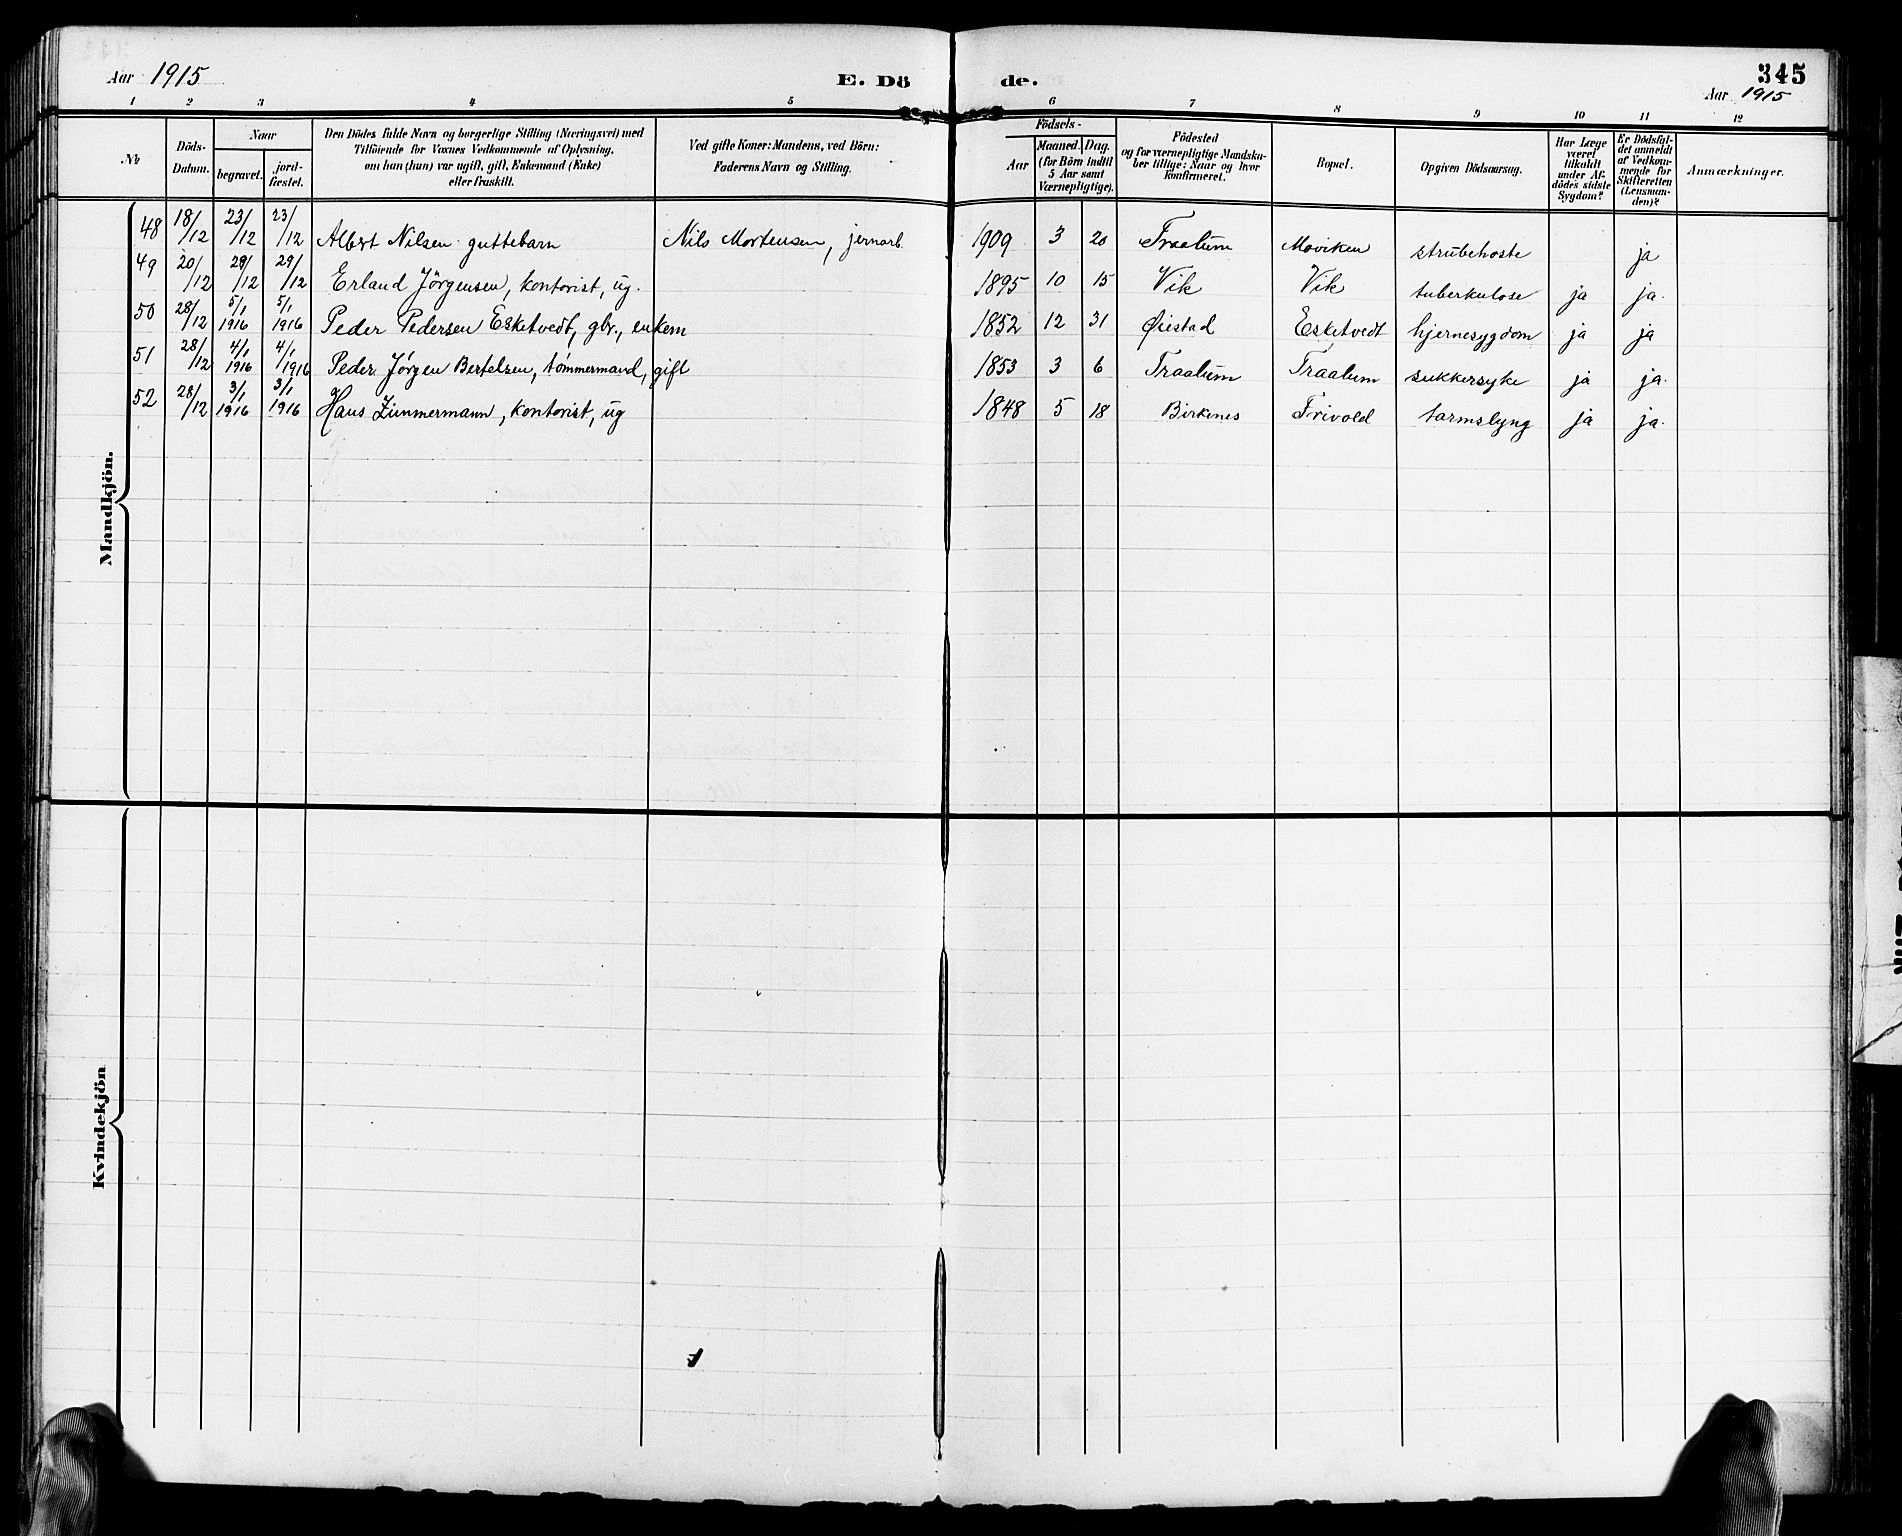 Aar 1915 E. Dö de. 345
Aar 1915
1 2 3 4 5 6 7 8 9 10 11 12
No
Döds-Datum.
Naar
begravet.
jord-fæstet.
Den Dödes fulde Navn og borgerlige Stilling (Næringsvei) med
Tilföiende for Voxnes Vedkommende af Oplysning,
om han (hun) var ugift, gift, Enkemand (Enke)
eller fraskilt.
Ved gifte Koner: Mandens, ved Börn:
Faderens Navn og Stilling.
Födsels-
Aar
Maaned.
Dag.
(for Börn indtil
5 Aar samt
Værnepligtige).
Födested
og for værnepligtige Mandska-
ber tillige: Naar og hvor
Konfirmeret.
Bopæl.
Opgiven Dödsaarsag.
Har Læge
været
tilkaldt
under Af-
dödes sidste
Sygdom?
Er Dödsfal-
det anmeldt
af Vedkom-
mende for
Skifteretten
(Lensman-
den)?
Anmærkninger.
Mandkjön.
48 18/12 23/12 23/12 Albert Nilsen guttebarn Nils Mortensen, jernarb. 1909 3 20 Fraalum Moviken strubehoste ja
49 20/12 29/12 29/12 Erland Jörgensen, kontorist, ug. 1895 10 15 Vik Vik tuberkulose ja ja.
50 28/12 5/1 1916 5/1 1916 Peder Pedersen Esketvedt, gbr., enkem 1852 12 31 Øiestad Esketvedt hjernesygdom ja ja
51 28/12 4/1 1916 4/1 1916 Peder Jørgen Bertelsen, tømmermand, gift 1853 3 6 Traalum Traalum sukkersyke ja ja.
52 28/12 3/1 1916 3/1 1916 Hans Zimmermann, kontorist, ug 1848 5 18 Birkenes Frivold tarmslyng ja ja.
Kvindekjön